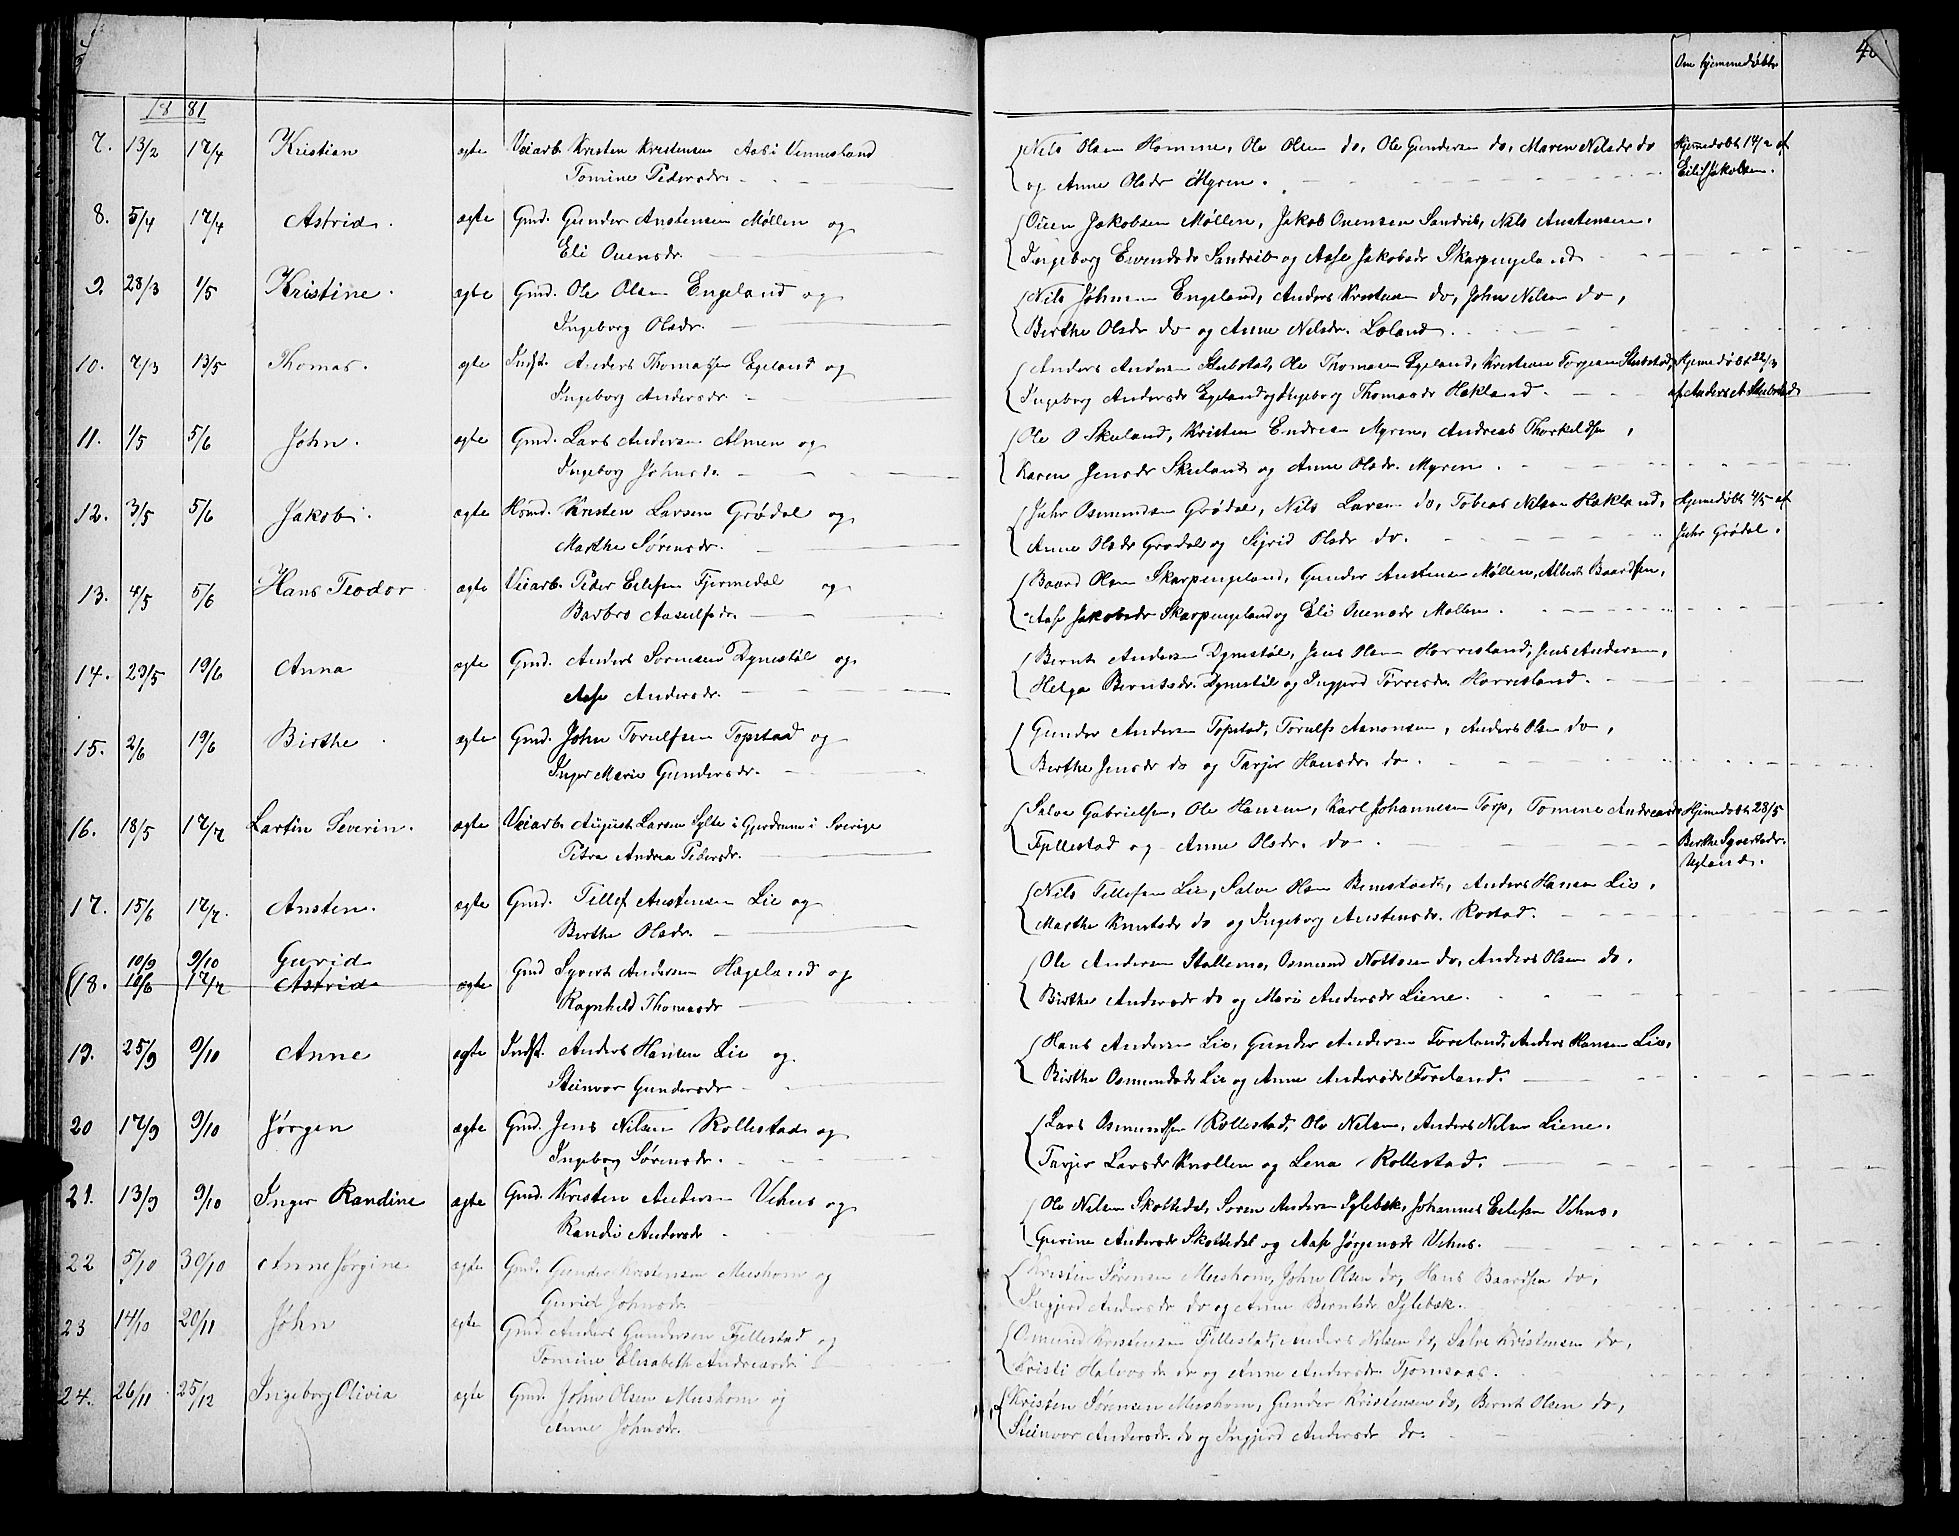 Om hjemmedøbte
1881
7. 13/2 17/4 Kristian ægte Veiarb. Kristen Kristensen Aas i Vennesland
Tomine Pedersdr.
Nils Olsen Homme, Ole Olsen do, Ole Gundersen do, Maren Nilsdr do
og Anne Olsdr Myren.
Hjemmedøbt 14/2 af
Eilif Jakobsen.
8. 5/4 17/4 Astrid. ægte Gmd. Gunder Austensen Møllen og
Eli Ouensdr.
Ouen Jakobsen Møllen, Jakob Ouensen Sandrib, Nils Austensen.
Ingeborg Evensdr Sandrib og Aase Jakobsdr Skarpengeland
9. 28/3 1/5 Kristine. ægte Gmd. Ole Olsen Engeland og
Ingeborg Olsdr.
Nils Johnsen Engeland, Anders Kristensen do, John Nilsen do,
Berthe Olsdr do og Anne Nilsdr. Loland.
10. 7/3 13/5 Thomas. ægte Indst. Anders Thomassen Egeland og
Ingeborg Andersdr.
Anders Andersen Stubstad, Ole Thomasen Egeland, Kristian Torjesen Stubstad,
Ingeborg Andersdr Egeland og Ingeborg Thomasdr Hakland.
Hjemmedøbt 22/3
af Anders A Stubstad
11. 1/5 5/6 John. ægte Gmd. Lars Andersen Almen og
Ingeborg Johnsdr.
Ole O Skuland, Kristen Endresen Myren, Andreas Thorkildsen,
Karen Jensdr Skuland og Anne Olsdr. Myren.
12. 3/5 5/6 Jakob. ægte Hsmd. Kristen Larsen Grødal og
Marthe Sørensdr.
Juhr Osmundsen Grødal, Nils Larsen do, Tobias Nilsen Hakland,
Anne Olsdr Grødal og Sigrid Olsdr do.
Hjemmedøbt 4/5 af
Juhr Grødal.
13. 4/5 5/6 Hans Teodor ægte Veiarb. Peder Eilefsen Fjermedal og
Barbro Aasulfsdr.
Baard Olsen Skarpengeland, Gunder Austensen Møllen, Albert Baardsen,
Aase Jakobsdr Skarpengeland og Eli Ouensdr Møllen.
14. 23/5 19/6 Anna ægte Gmd. Anders Sørensen Dynestøl og
Aase Andersdr.
Bernt Andersen Dynestøl, Jens Olsen Horrisland, Jens Andersen,
Helga Berntsdr. Dynestøl og Ingjerd Torresdr. Horrisland.
15. 2/6 19/6 Birthe ægte Gmd. John Torulfsen Topstad og
Inger Marie Gundersdr.
Gunder Andersen Topstad, Torulfs Aanonsen, Anders Olsen do,
Berthe Jensdr do og Tarjer Hansdr. do.
16. 18/5 17/7 Lartin Severin. ægte Veiarb. August Larsen Sylte i Sverige
Petra Andrea Pedersdr.
Salve Gabrielsen, Ole Hansen, Karl Johannesen Torp, Tomine Andreasdr
Fjellestad og Anne Olsdr. do
Hjemmedøbt 28/5
Berthe Syvertsdr.
Uglands.
17. 15/6 17/7. Austen. ægte Gmd. Tellef Austensen Lie og
Berthe Olsdr.
Nils Tellefsen Lie, Salve Olsen, Anders Hansen Lie,
Marthe Knutsdr do og Ingeborg Austensdr. Rostad.
10/9 9/10 Gurid
18. 10/6 17/7 Astrid ægte Gmd Syvert Andersen Hægeland og
Ragnhild Thomasdr
Ole Andersen Stallemo, Osmund Nottosen do, Anders Olsen do.
Birthe Andersdr do og Mari Andersdr Liene.
19. 25/9 9/10 Anne ægte Indst. Anders Hansen Lie og
Steinvor Gundersdr
Hans Andersen Lie, Gunder Andersen Foreland, Anders Hansen Lie,
Birthe Osmundsdr Lie og Anne Andersdr Foreland.
20 17/9 9/10 Jørgen ægte Gmd. Jens Nilsen Rollestad og
Ingeborg Sørensdr.
Lars Osmundsen Rollestad, Ole Nilsen, Anders Nilsen Liene.
Tarjer Larsdr Knollen og Lena Rollestad.
21. 13/9 9/10 Inger Randine ægte Gmd. Kristen Andersen Vehus og
Randi Andersdr
Ole Nilsen Skottedal, Soren Andersen Sylebæk, Johannes Eilefsen Vehus,
Gurine Andersdr Skottedal og Aase Jørgensdr Vehus.
22 5/10 30/10 Anne Jørgine ægte Gmd. Gunder Kristensen Mushom og
Gurid Johnsdr.
Kristen Sørensen Mushom, John Olsen do, Hans Baardsen do,
Ingjerd Andersdr do og Anne Berntsdr Sylebæk.
23 14/10 20/11 John ægte Gmd Anders Gundersen Fjellestad og
Tomine Elisabeth Andreasdr
Osmund Kristensen Fjellestad, Anders Nilsen do, Salve Kristensen do,
Kristi Halvorsdr do og Anne Andersdr Tjomsaas.
24. 26/11 25/12 Ingeborg Olivia ægte Gmd. John Olsen Mushom og
Anne Johnsdr.
Kristen Sørensen Mushom, Gunder Kristensen do, Bernt Olsen do,
Steinvor Andersdr. do og Ingjerd Andersdr do.